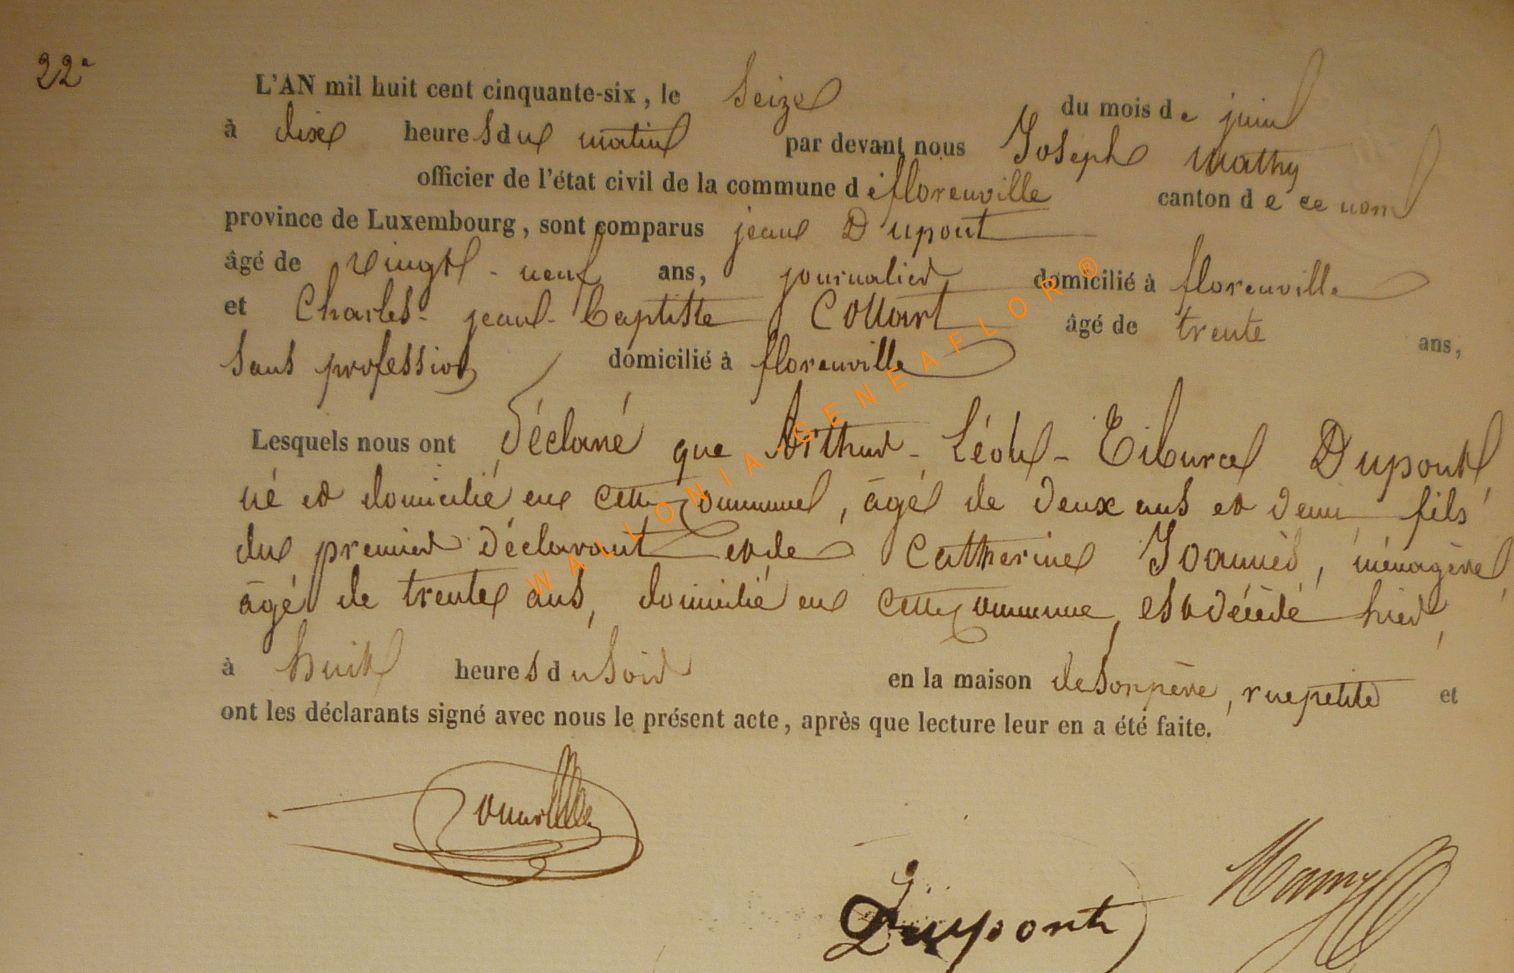 22e
L'AN mil huit cent cinquante-six, le seize du mois de juin
à dix heures du matin par devant nous Joseph Mathy
officier de l'état civil de la commune de florenville canton de ce nom
province de Luxembourg, sont comparus jean Dupont
âgé de vingt-neuf ans, journalier domicilié à florenville
et Charles-jean-baptiste Collart âgé de trente ans,
sans profession domicilié à florenville
Lesquels nous ont déclaré que Arthur-Léon-Tiburce Dupont,
né et domicilié en cette commune, âgé de deux ans et demi fils
du premier déclarant et de Catherine Joannès, ménagère,
âgé de trente ans, domicilié en cette commune, est décédé hier,
à huit heures du soir en la maison de son père, rue petite et
ont les déclarants signé avec nous le présent acte, après que lecture leur en a été faite.
WALLONIA-GENEAFLOR®
Dupont